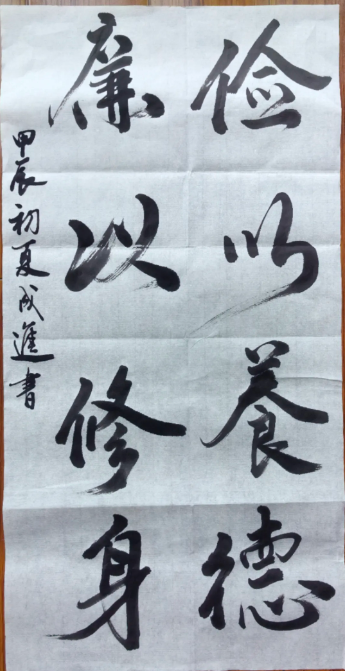 俭以養德
廉以修身
甲辰初夏成進書